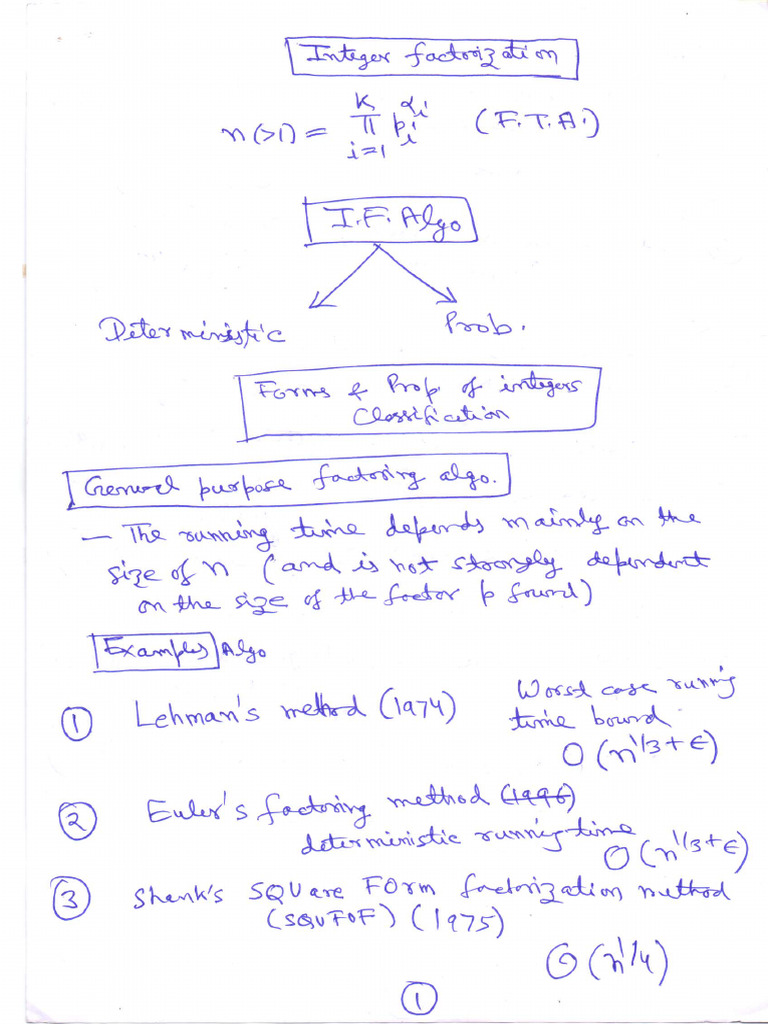 Integer factorization
n(>1) = k∏i=1 pᵢ^αᵢ (F.T.A.)
I.F. Algo
Deterministic Prob.
Forms & Prop. of integers
Classification
General purpose factoring algo.
— The running time depends mainly on the
size of n (and is not strongly dependent
on the size of the factor p found)
Examples Algo
① Lehman's method (1974) Worst case running
time bound
O(n^1/3+ϵ)
② Euler's factoring method (1996)
deterministic running time
O(n^1/3+ϵ)
③ Shank's SQUare FOrm factorization method
(SQUFOF) (1975)
O(n^1/4)
①